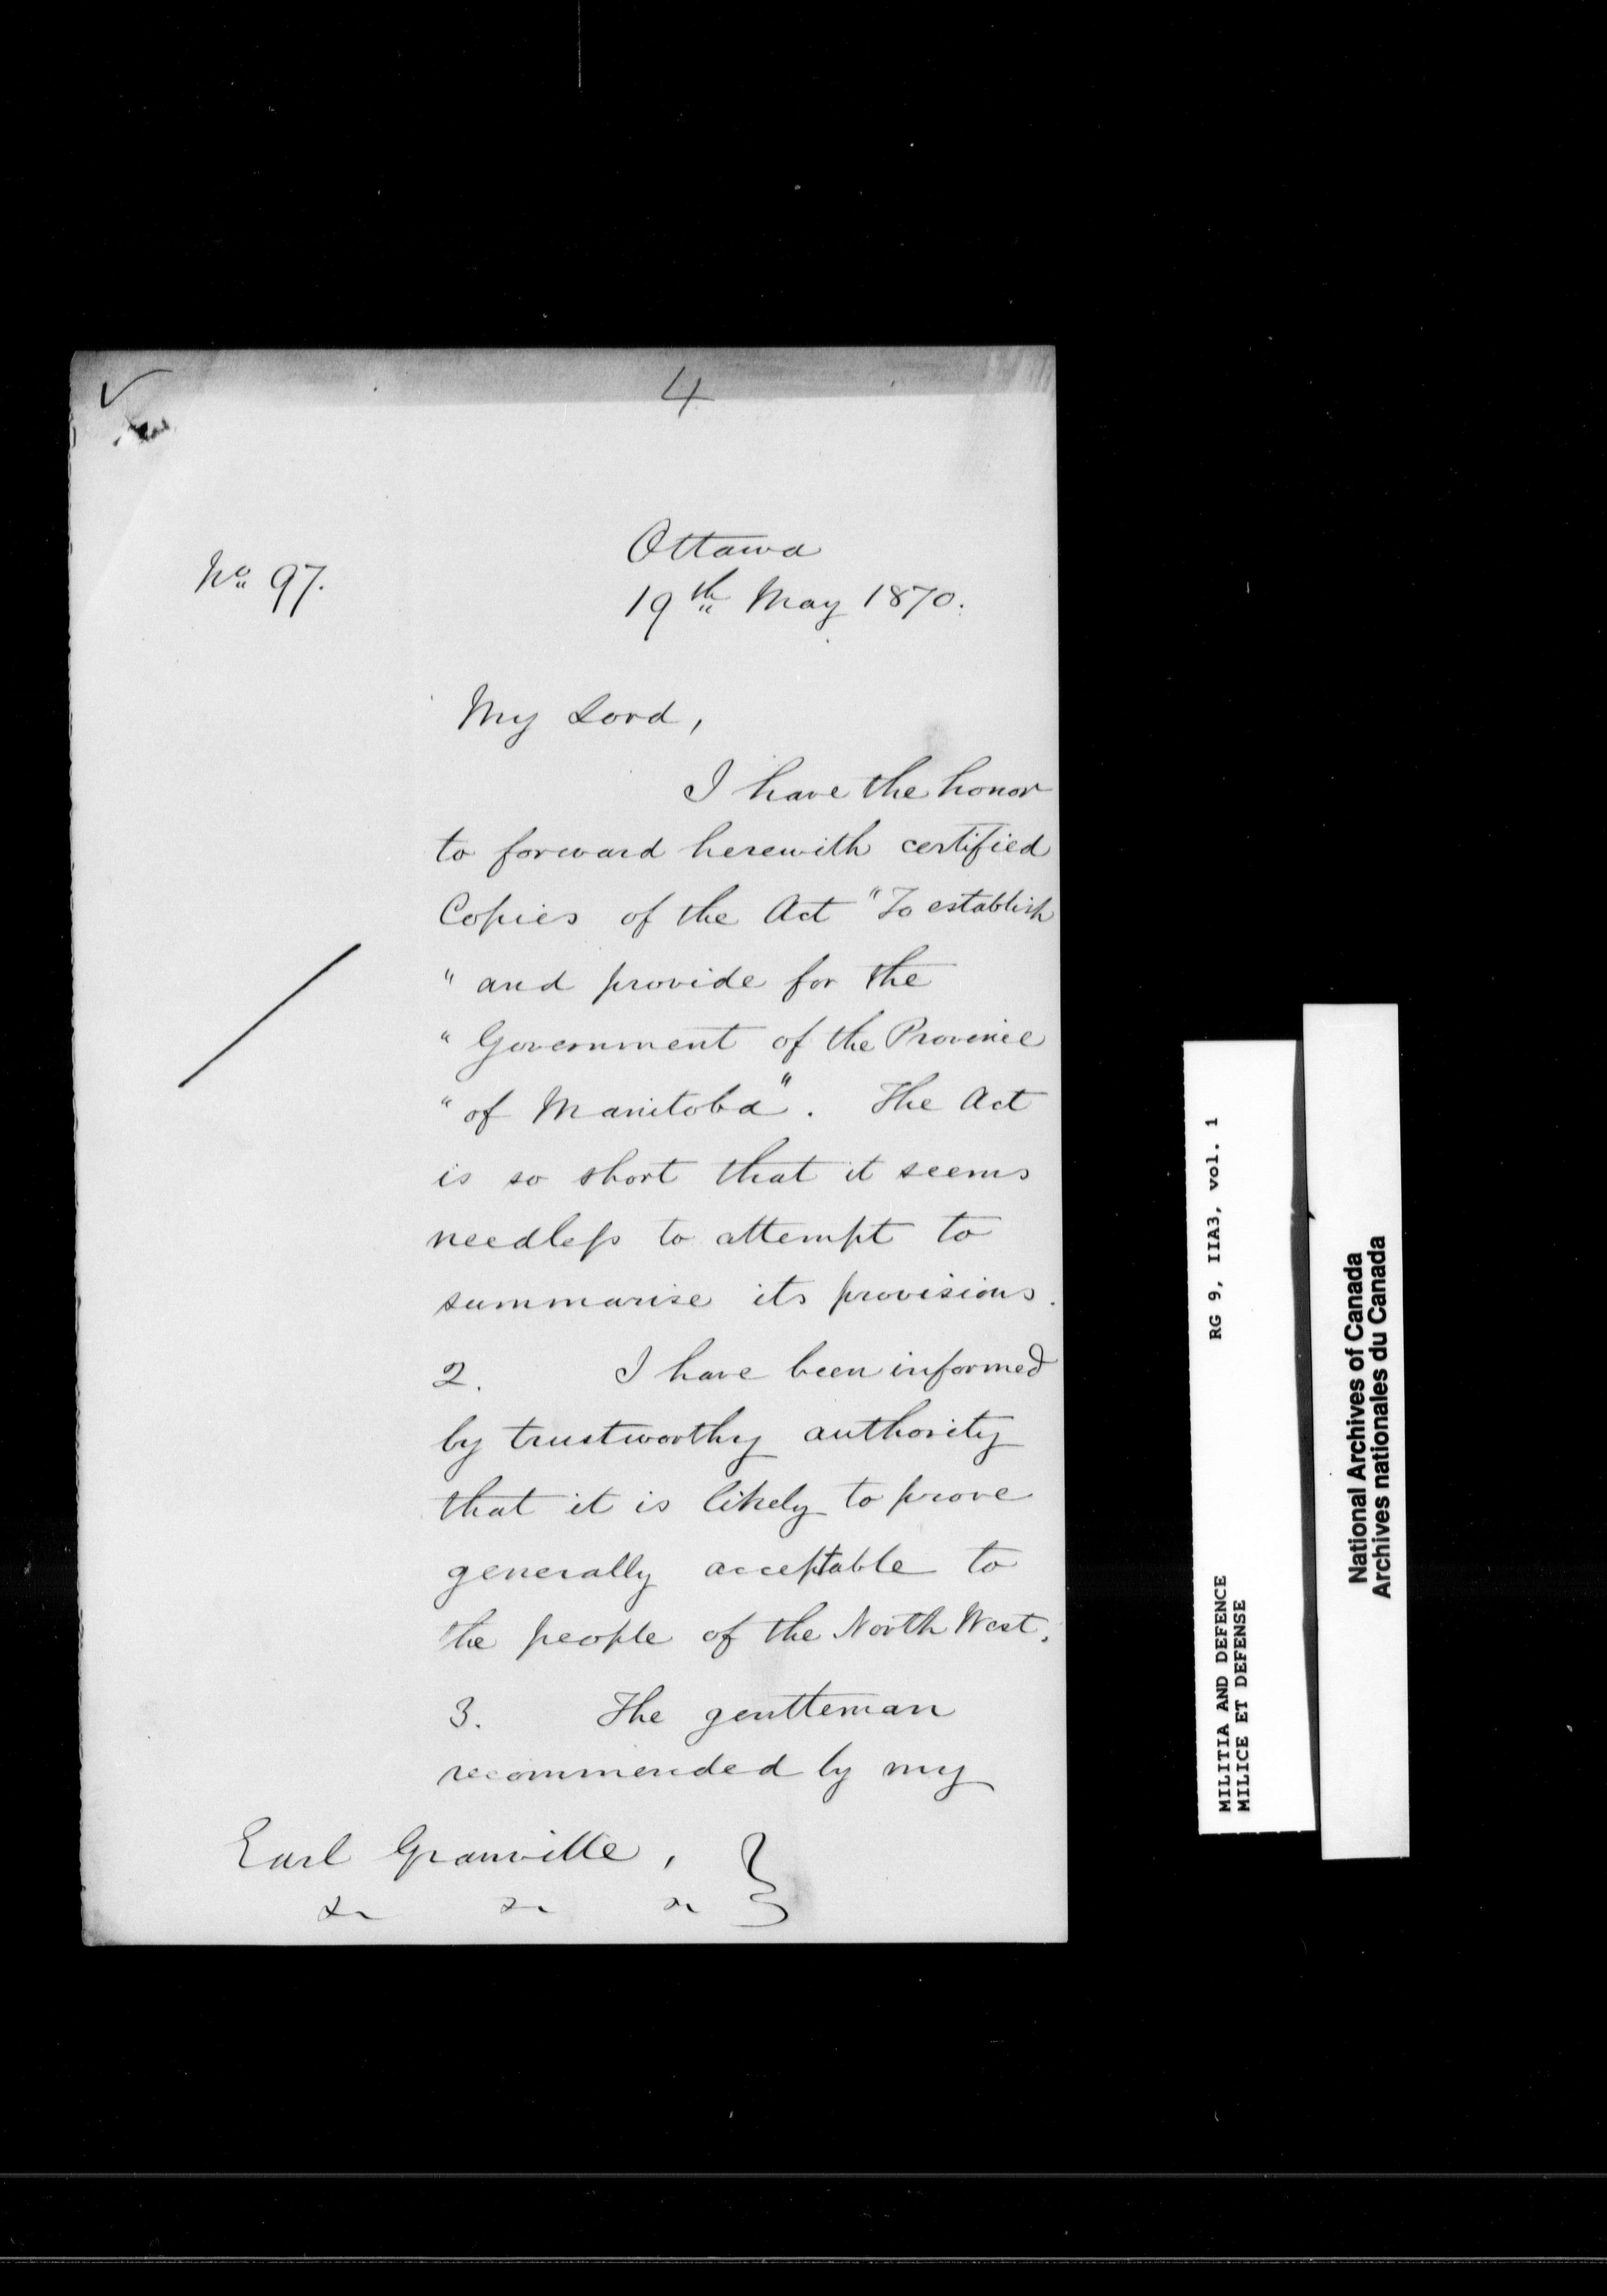 4
Ottawa
No 97.
19th May 1870.
My Lord,
I have the honor
to forward herewith certified
Copies of the Act "To establish
" and provide for the
" Government of the Province
" of Manitoba". The Act
is so short that it seems
needless to attempt to
summarise its provisions.
2. I have been informed
by trustworthy authority
that it is likely to prove
generally acceptable to
the people of the North West.
3. The gentleman
recommended by my
Earl Granville,
&c &c &c
MILITIA AND DEFENCE RG 9, IIA3, vol. 1
MILICE ET DEFENSE
National Archives of Canada
Archives nationales du Canada